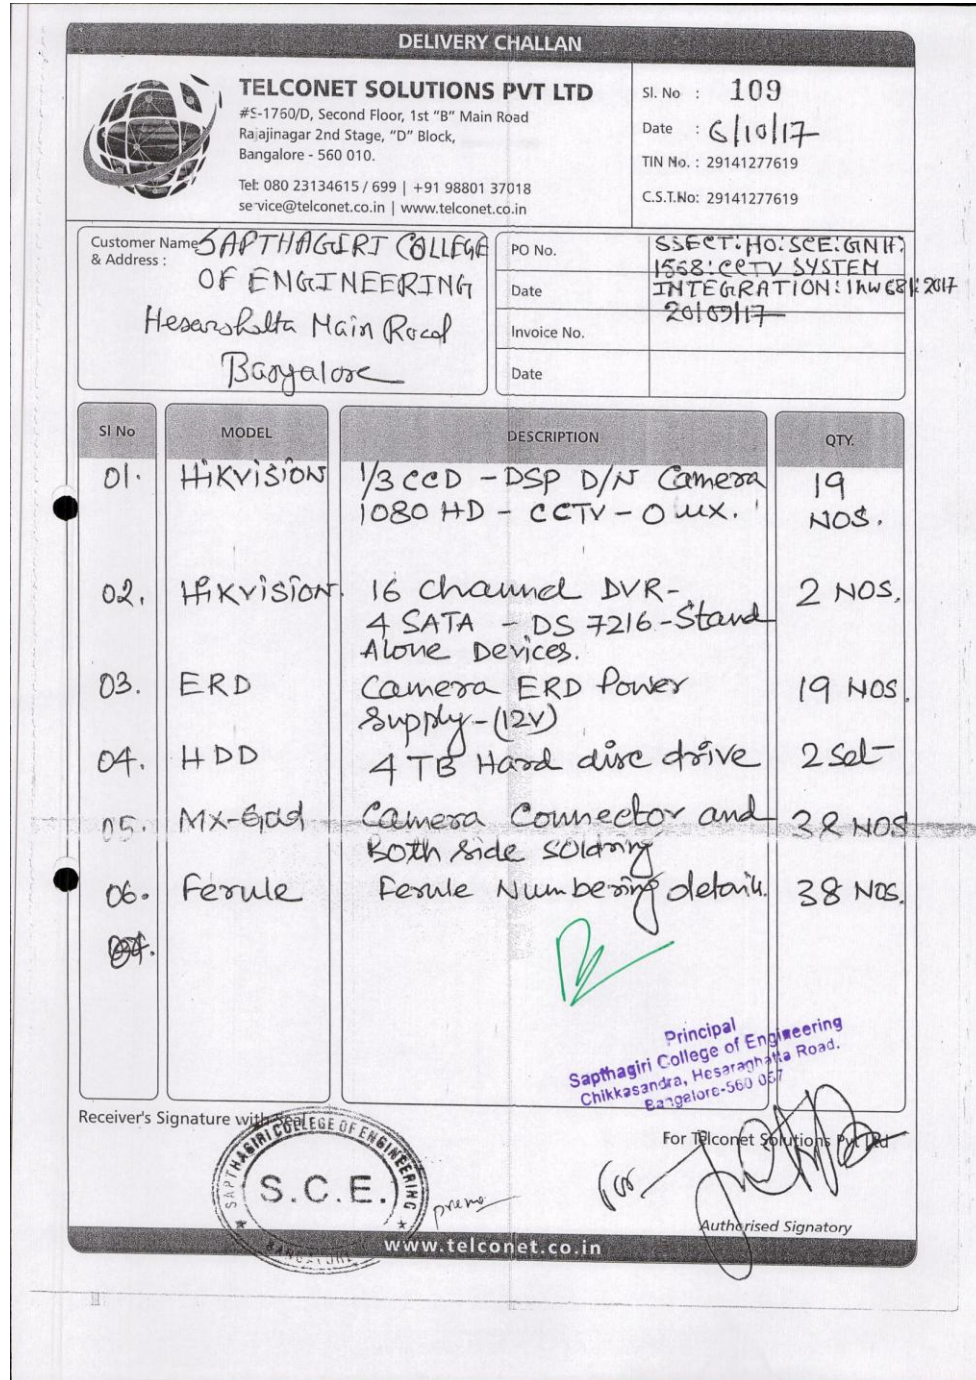 DELIVERY CHALLAN
TELCONET SOLUTIONS PVT LTD
#S-1760/D, Second Floor, 1st "B" Main Road
Rajajinagar 2nd Stage, "D" Block,
Bangalore - 560 010.
Tel: 080 23134615 / 699 | +91 98801 37018
service@telconet.co.in | www.telconet.co.in
Sl. No : 109
Date : 6/10/17
TIN No. : 29141277619
C.S.T.No: 29141277619
Customer Name & Address :
SAPTHAGIRI COLLEGE
OF ENGINEERING
Main Road
Bangalore
PO No.
Date
Invoice No.
Date
SSECT:HO:SCE:GNH:
1568:CCTV SYSTEM
INTEGRATION: 2017
20/09/17
Sl No MODEL DESCRIPTION QTY.
01. HiKvision 1/3 CCD - DSP D/N Camera 19
1080 HD - CCTV - 0 NOS.
02. HiKvision. 16 Channel DVR- 2 NOS.
4 SATA - DS 7216 - Stand
Alone Devices.
03. ERD Camera ERD Power 19 NOS.
Supply - (12V)
04. HDD 4 TB Hard disc drive 2 Set
05. Mx- Camera Connector and 38 NOS
Both side soldring
06. Ferule Ferule Numbering details. 38 Nos.
Principal
Sapthagiri College of Engineering
Chikkasandra, Hesaraghatta Road.
Bangalore-560 057
Receiver's Signature with Seal
SAPTHAGIRI COLLEGE OF ENGINEERING
S.C.E.
BANGALORE
For Telconet Solutions Pvt Ltd
For
Authorised Signatory
www.telconet.co.in